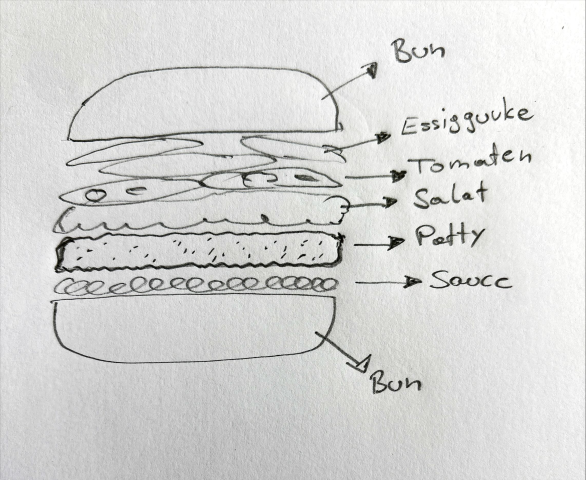 Bun
Essiggurke
Tomaten
Salat
Patty
Sauce
Bun